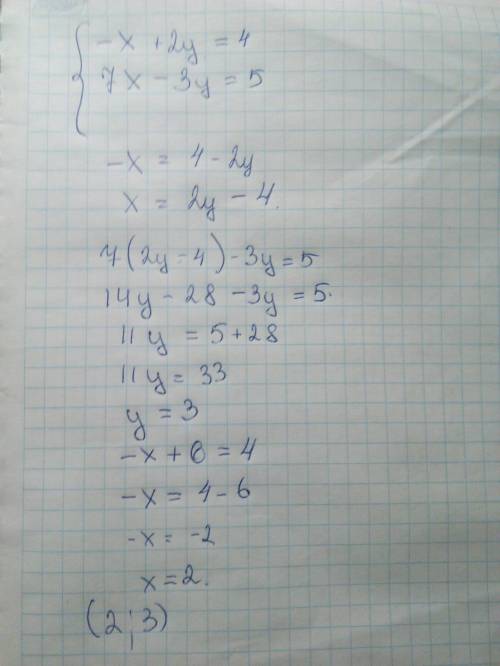 { -x + 2y = 4
7x - 3y = 5
-x = 4 - 2y
x = 2y - 4.
7(2y - 4) - 3y = 5
14y - 28 - 3y = 5.
11y = 5 + 28
11y = 33
y = 3
-x + 6 = 4
-x = 4 - 6
-x = -2
x = 2.
(2; 3)